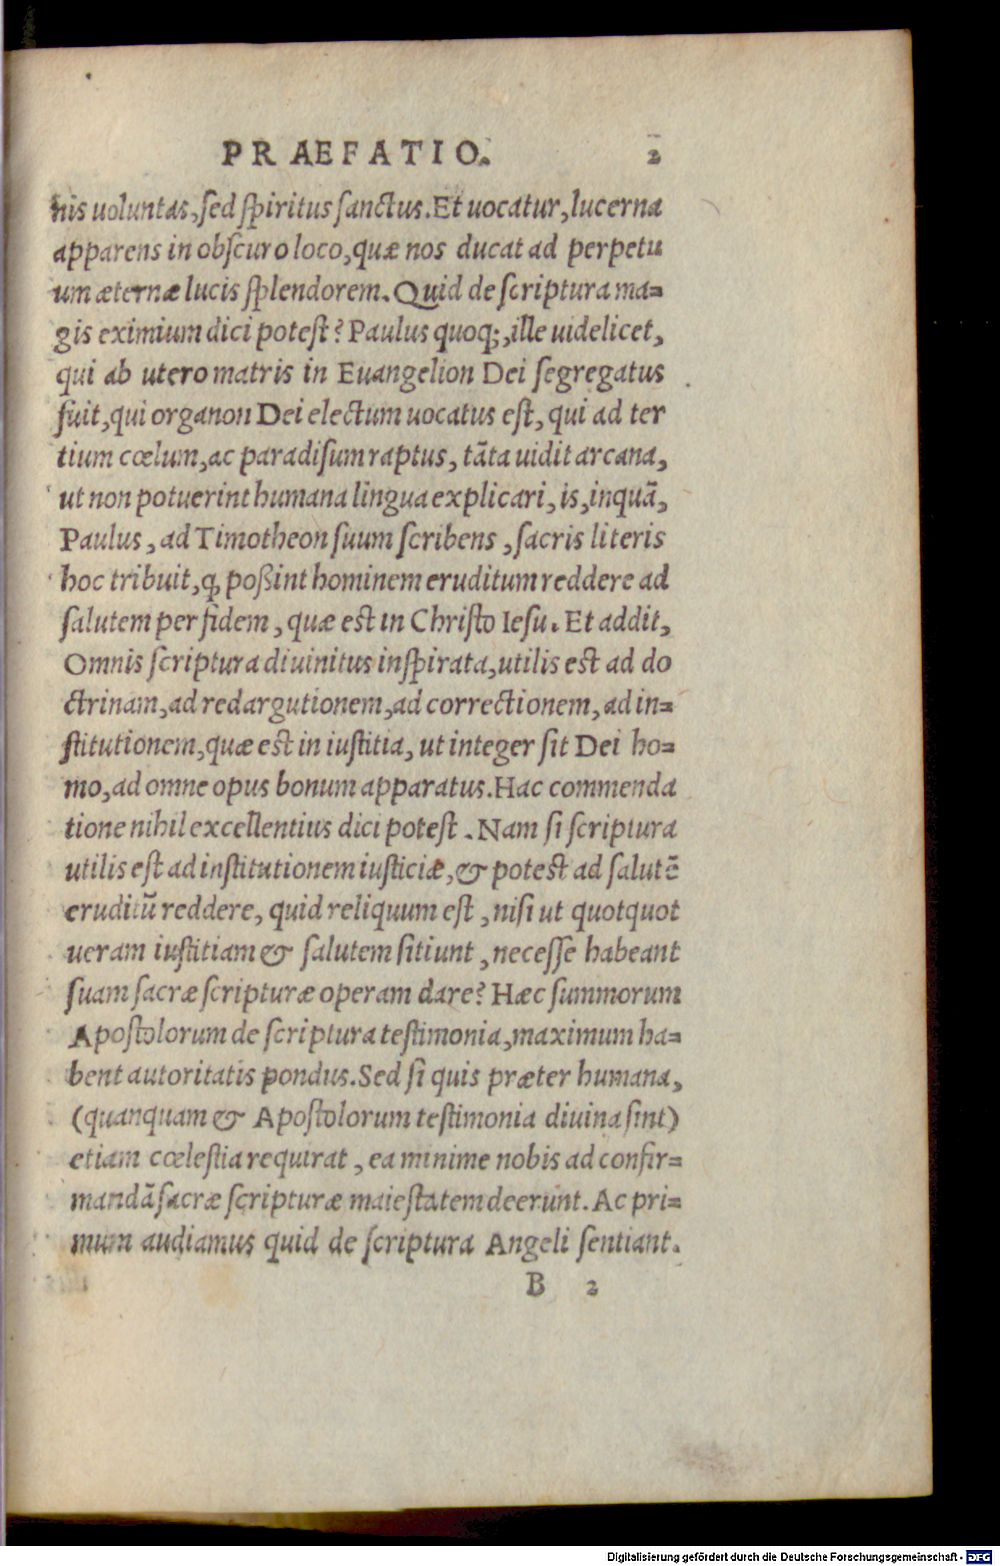 PRAEFATIO. 2
nis uoluntas, sed spiritus sanctus. Et uocatur, lucerna
apparens in obscuro loco, quæ nos ducat ad perpetu
um æternæ lucis splendorem. Quid de scriptura ma=
gis eximium dici potest? Paulus quoq;, ille uidelicet,
qui ab utero matris in Euangelion Dei segregatus
fuit, qui organon Dei electum uocatus est, qui ad ter
tium cœlum, ac paradisum raptus, tãta uidit arcana,
ut non potuerint humana lingua explicari, is, inquã,
Paulus, ad Timotheon suum scribens, sacris literis
hoc tribuit, ꝙ poßint hominem eruditum reddere ad
salutem per fidem, quæ est in Christo Iesu. Et addit,
Omnis scriptura diuinitus inspirata, utilis est ad do
ctrinam, ad redargutionem, ad correctionem, ad in=
stitutionem, quæ est in iustitia, ut integer sit Dei ho=
mo, ad omne opus bonum apparatus. Hac commenda
tione nihil excellentius dici potest. Nam si scriptura
utilis est ad institutionem iusticiæ, & potest ad salutẽ
eruditũ reddere, quid reliquum est, nisi ut quotquot
ueram iustitiam & salutem sitiunt, necesse habeant
suam sacræ scripturæ operam dare? Hæc summorum
Apostolorum de scriptura testimonia, maximum ha=
bent autoritatis pondus. Sed si quis præter humana,
(quanquam & Apostolorum testimonia diuina sint)
etiam cœlestia requirat, ea minime nobis ad confir=
mandã sacræ scripturæ maiestatem deerunt. Ac pri=
mum audiamus quid de scriptura Angeli sentiant.
B 2
Digitalisierung gefördert durch die Deutsche Forschungsgemeinschaft - DFG